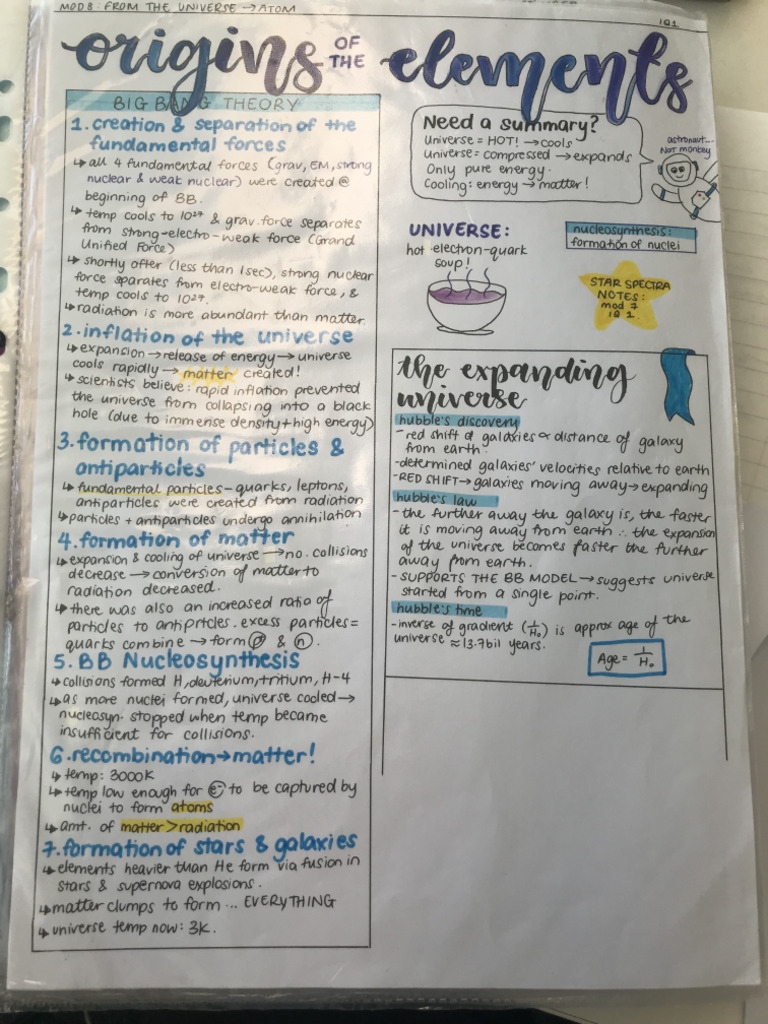 MOD 8: FROM THE UNIVERSE → ATOM
IQ1
origins OF THE elements
BIG BANG THEORY
1. creation & separation of the
fundamental forces
↳ all 4 fundamental forces (grav, EM, strong
nuclear & weak nuclear) were created @
beginning of BB.
↳ temp cools to 10²⁷ & grav. force separates
from strong-electro-weak force (Grand
Unified Force)
↳ shortly after (less than 1sec), strong nuclear
force sparates from electro-weak force, &
temp cools to 10²⁷.
↳ radiation is more abundant than matter.
2. inflation of the universe
↳ expansion → release of energy → universe
cools rapidly → matter created!
↳ scientists believe: rapid inflation prevented
the universe from collapsing into a black
hole (due to immense density + high energy)
3. formation of particles &
antiparticles
↳ fundamental particles - quarks, leptons,
antiparticles were created from radiation
↳ particles + antiparticles undergo annihilation
4. formation of matter
↳ expansion & cooling of universe → no. collisions
decrease → conversion of matter to
radiation decreased.
↳ there was also an increased ratio of
particles to antiprtcles. excess particles =
quarks combine → form p & n.
5. BB Nucleosynthesis
↳ collisions formed H, deuterium, tritium, H-4
↳ as more nuclei formed, universe cooled →
nucleosyn. stopped when temp became
insufficient for collisions.
6. recombination → matter!
↳ temp: 3000K
↳ temp low enough for e⁻ to be captured by
nuclei to form atoms
↳ amt. of matter > radiation
7. formation of stars & galaxies
↳ elements heavier than He form via fusion in
stars & supernova explosions.
↳ matter clumps to form ... EVERYTHING
↳ universe temp now: 3K.
Need a summary?
Universe = HOT! → cools
Universe = compressed → expands
Only pure energy.
Cooling: energy → matter!
astronaut...
NOT monkey
UNIVERSE:
hot electron-quark
soup!
nucleosynthesis:
formation of nuclei
STAR SPECTRA
NOTES:
mod 7
IQ 2.
the expanding
universe
hubble's discovery
- red shift of galaxies ∝ distance of galaxy
from earth.
- determined galaxies' velocities relative to earth
- RED SHIFT → galaxies moving away → expanding
hubble's law
- the further away the galaxy is, the faster
it is moving away from earth ∴ the expansion
of the universe becomes faster the further
away from earth.
- SUPPORTS THE BB MODEL → suggests universe
started from a single point.
hubble's time
- inverse of gradient (1/H₀) is approx age of the
universe ≈ 13.7 bil years.
Age = 1/H₀